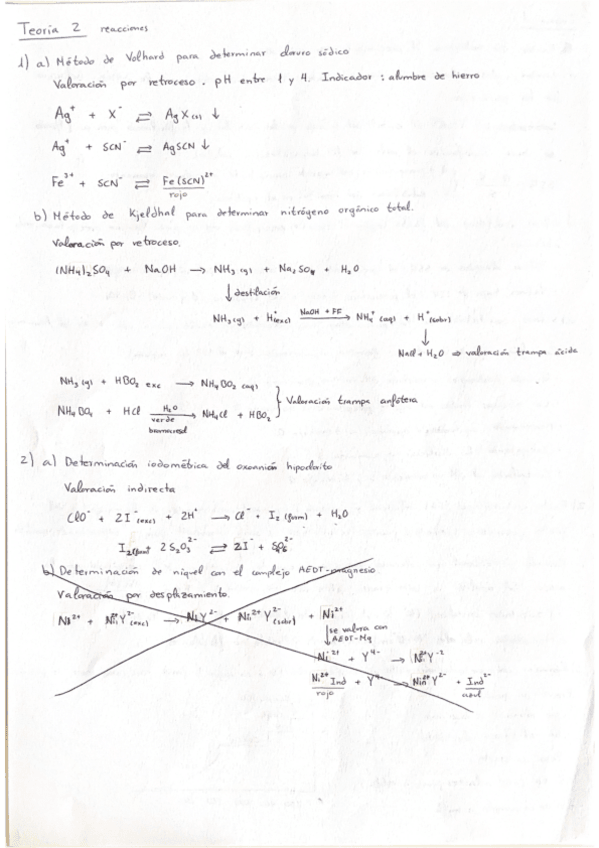 Teoría 2 reacciones
1) a) Método de Volhard para determinar cloruro sódico
Valoración por retroceso. pH entre 1 y 4. Indicador: alumbre de hierro
Ag⁺ + X⁻ ⇌ AgX(s) ↓
Ag⁺ + SCN⁻ ⇌ AgSCN ↓
Fe³⁺ + SCN⁻ ⇌ Fe(SCN)²⁺
rojo
b) Método de Kjeldhal para determinar nitrógeno orgánico total.
Valoración por retroceso.
(NH₄)₂SO₄ + NaOH → NH₃(g) + Na₂SO₄ + H₂O
↓ destilación
NH₃(g) + H⁺(exc) NaOH + FF → NH₄⁺(aq) + H⁺(sobr)
↓
NaCl + H₂O ⇒ valoración trampa ácida
NH₃(g) + HBO₂ exc → NH₄BO₂(aq)
NH₄BO₂ + HCl H₂O → NH₄Cl + HBO₂ } Valoración trampa anfótera
verde
bromocresol
2) a) Determinación iodométrica del oxoanión hipoclorito
Valoración indirecta
ClO⁻ + 2I⁻(exc) + 2H⁺ → Cl⁻ + I₂(form) + H₂O
I₂(form) 2S₂O₃²⁻ ⇌ 2I⁻ +
b) Determinación de niquel con el complejo AEDT-magnesio
Valoración por desplazamiento.
(exc) → + (sobr) + Ni²⁺
↓ se valora con
AEDT-Mg
Ni²⁺ + Y⁴⁻ →
Ni²⁺ Ind + Y⁴⁻ → + Ind²⁻
rojo azul